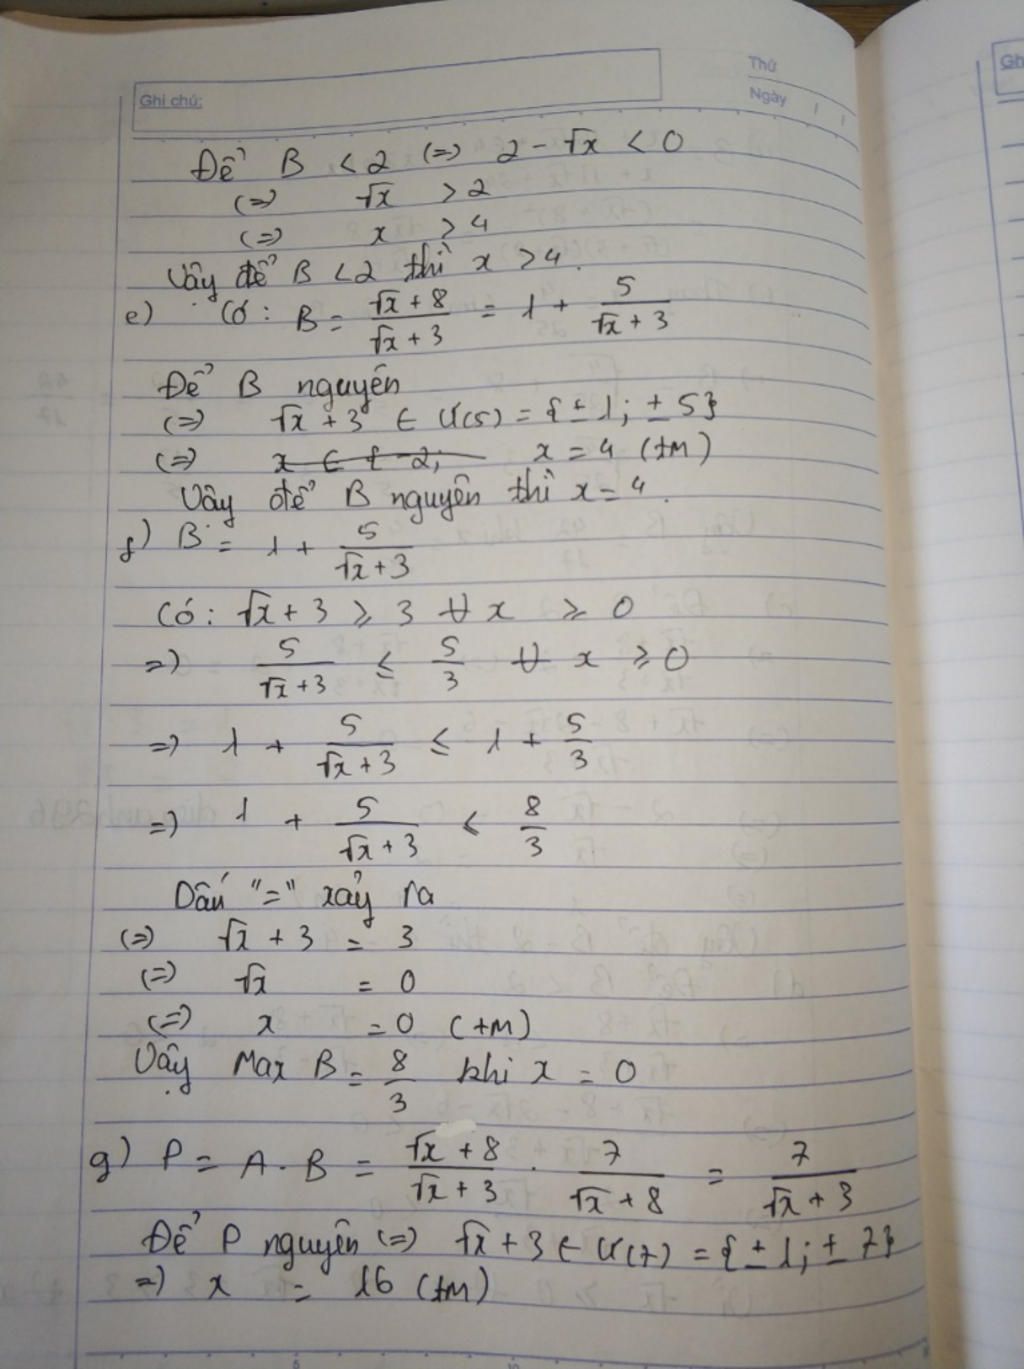 Thứ
Ghi chú:
Ngày
Gh
Để B < 2 (=) 2 - √x < 0
(=) √x > 2
(=) x > 4
Vậy để B < 2 thì x > 4.
e) Có: B = (√x + 8)/(√x + 3) = 1 + 5/(√x + 3)
Để B nguyên
(=) √x + 3 ∈ Ư(5) = {± 1; ± 5}
(=) x = 4 (tM)
Vậy để B nguyên thì x = 4.
f) B = 1 + 5/(√x + 3)
Có: √x + 3 ≥ 3 ∀ x ≥ 0
=) 5/(√x + 3) ≤ 5/3 ∀ x ≥ 0
=) 1 + 5/(√x + 3) ≤ 1 + 5/3
=) 1 + 5/(√x + 3) ≤ 8/3
Dấu "=" xảy ra
(=) √x + 3 = 3
(=) √x = 0
(=) x = 0 (tM)
Vậy Max B = 8/3 khi x = 0
g) P = A . B = (√x + 8)/(√x + 3) . 7/(√x + 8) = 7/(√x + 3)
Để P nguyên (=) √x + 3 ∈ Ư(7) = {± 1; ± 7}
=) x = 16 (tM)